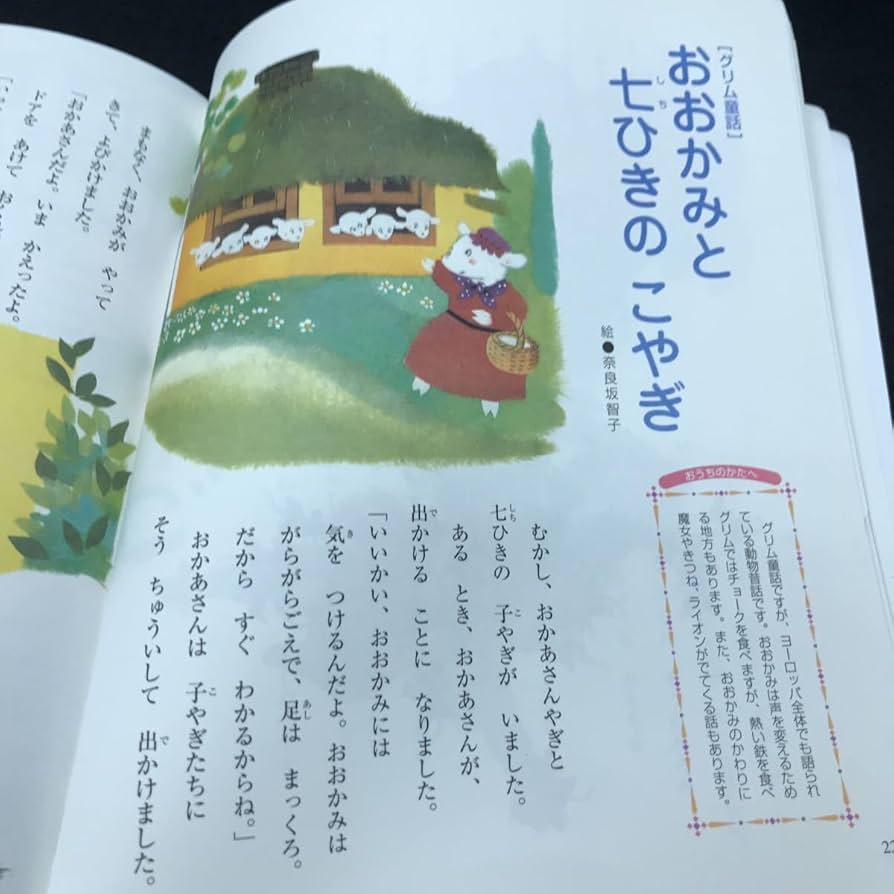 [グリム童話]
おおかみと
七ひきの こやぎ
絵●奈良坂智子
おうちのかたへ
グリム童話ですが、ヨーロッパ全体でも語られ
ている動物昔話です。おおかみは声を変えるため
グリムではチョークを食べますが、熱い鉄を食べ
る地方もあります。また、おおかみのかわりに
魔女やきつね、ライオンがでてくる話もあります。
むかし、おかあさんやぎと
七ひきの 子やぎが いました。
ある とき、おかあさんが、
出かける ことに なりました。
「いいかい、おおかみには
気を つけるんだよ。おおかみは
がらがらごえで、足は まっくろ。
だから すぐ わかるからね。」
おかあさんは 子やぎたちに
そう ちゅういして 出かけました。
まもなく、おおかみが やって
きて、よびかけました。
「おかあさんだよ。いま かえったよ。
ドアを あけて